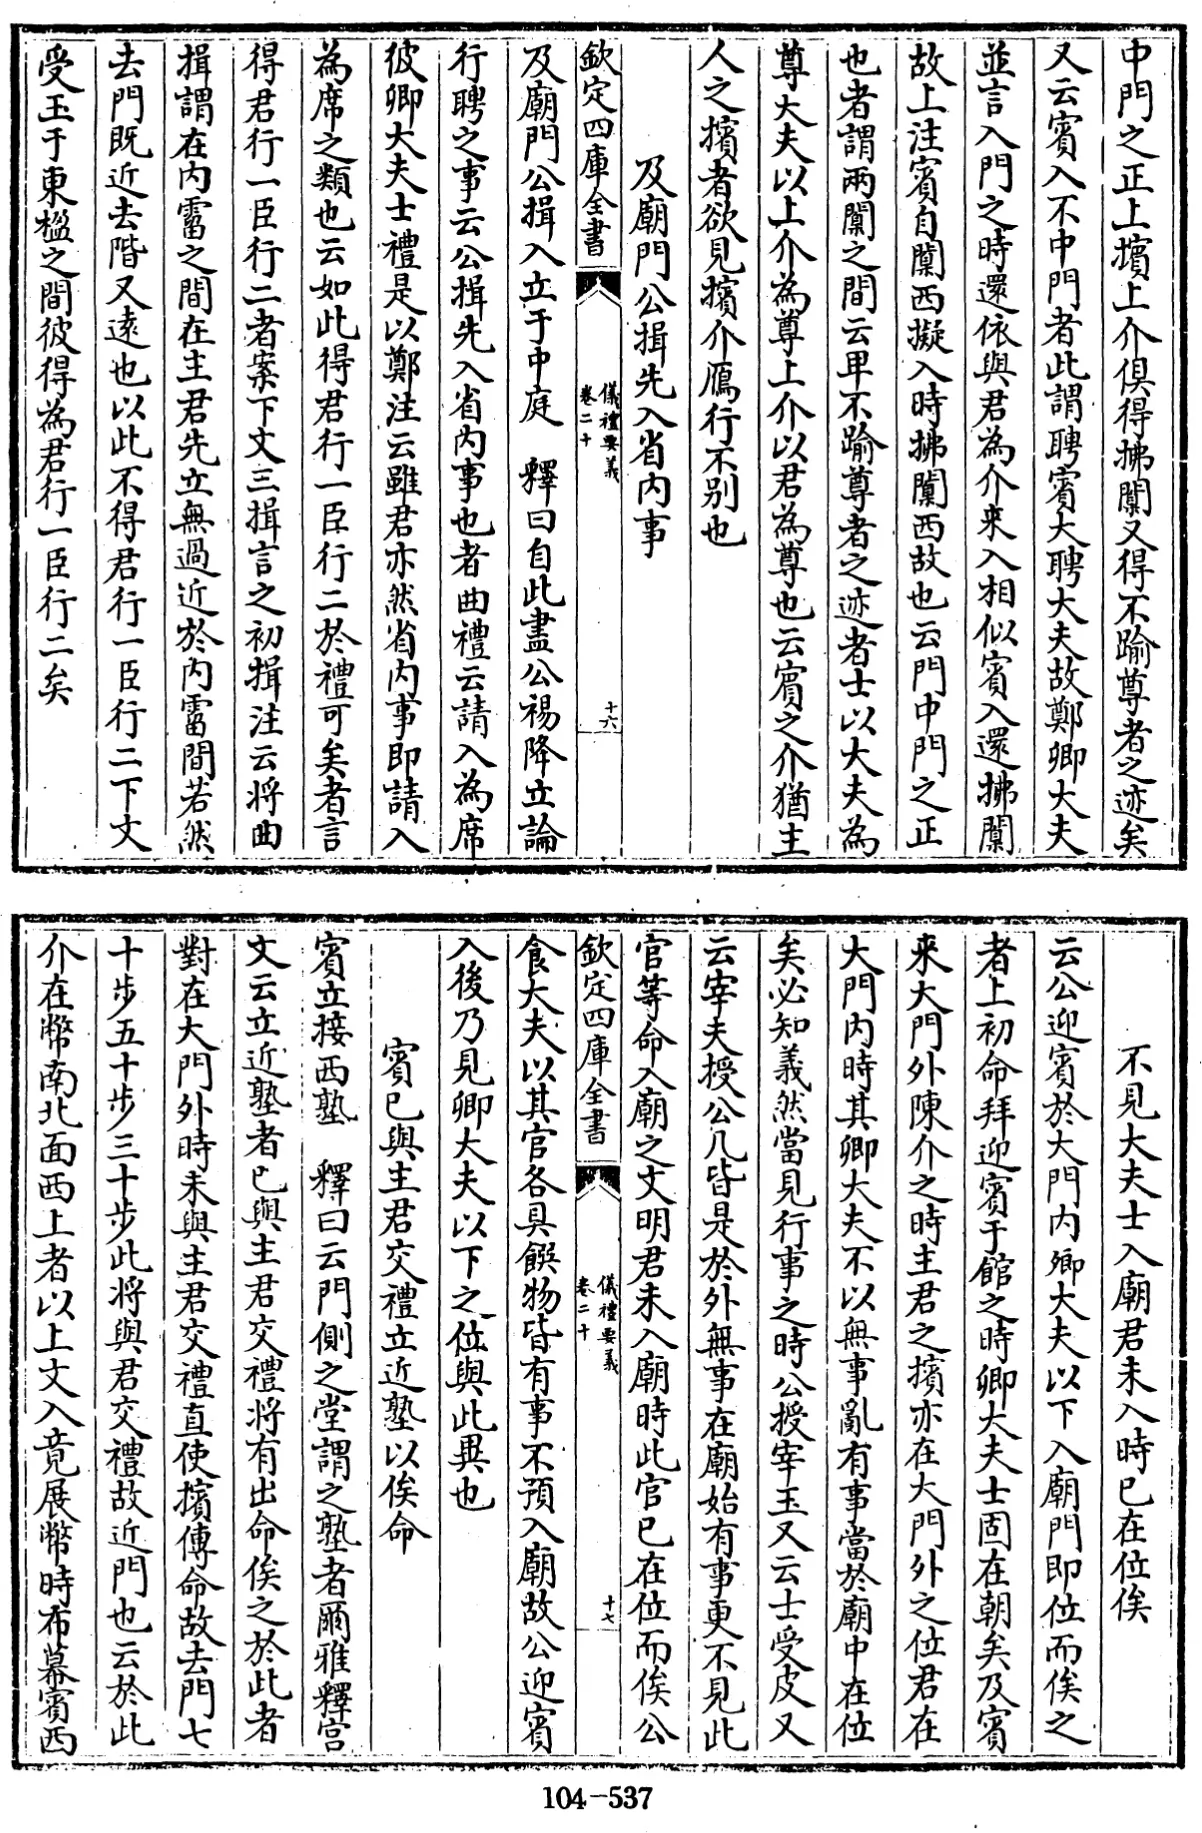 中門之正上擯上介俱得拂闑又得不踰尊者之迹矣
又云賓入不中門者此謂聘賓大聘大夫故鄭卿大夫
並言入門之時還依與君為介來入相似賓入還拂闑
故上注賓自闑西擬入時拂闑西故也云門中門之正
也者謂兩闑之間云卑不踰尊者之迹者士以大夫為
尊大夫以上介為尊上介以君為尊也云賓之介猶主
人之擯者欲見擯介鴈行不别也
及廟門公揖先入省内事
欽定四庫全書
儀禮要義
卷二十
十六
及廟門公揖入立于中庭 釋曰自此盡公裼降立論
行聘之事云公揖先入省内事也者曲禮云請入為席
彼卿大夫士禮是以鄭注云雖君亦然省内事即請入
為席之類也云如此得君行一臣行二於禮可矣者言
得君行一臣行二者案下文三揖言之初揖注云將曲
揖謂在内霤之間在主君先立無過近於内霤間若然
去門既近去階又遠也以此不得君行一臣行二下文
受玉于東楹之間彼得為君行一臣行二矣
不見大夫士入廟君未入時已在位俟
云公迎賓於大門内卿大夫以下入廟門即位而俟之
者上初命拜迎賓于館之時卿大夫士固在朝矣及賓
来大門外陳介之時主君之擯亦在大門外之位君在
大門内時其卿大夫不以無事亂有事當於廟中在位
矣必知義然當見行事之時公授宰玉又云士受皮又
云宰夫授公几皆是於外無事在廟始有事更不見此
官等命入廟之文明君未入廟時此官已在位而俟公
欽定四庫全書
儀禮要義
卷二十
十七
食大夫以其官各具饌物皆有事不預入廟故公迎賓
入後乃見卿大夫以下之位與此異也
賓已與主君交禮立近塾以俟命
賓立接西塾 釋曰云門側之堂謂之塾者爾雅釋宫
文云立近塾者已與主君交禮將有出命俟之於此者
對在大門外時未與主君交禮直使擯傳命故去門七
十步五十步三十步此將與君交禮故近門也云於此
介在幣南北面西上者以上文入竟展幣時布幕賓西
104-537